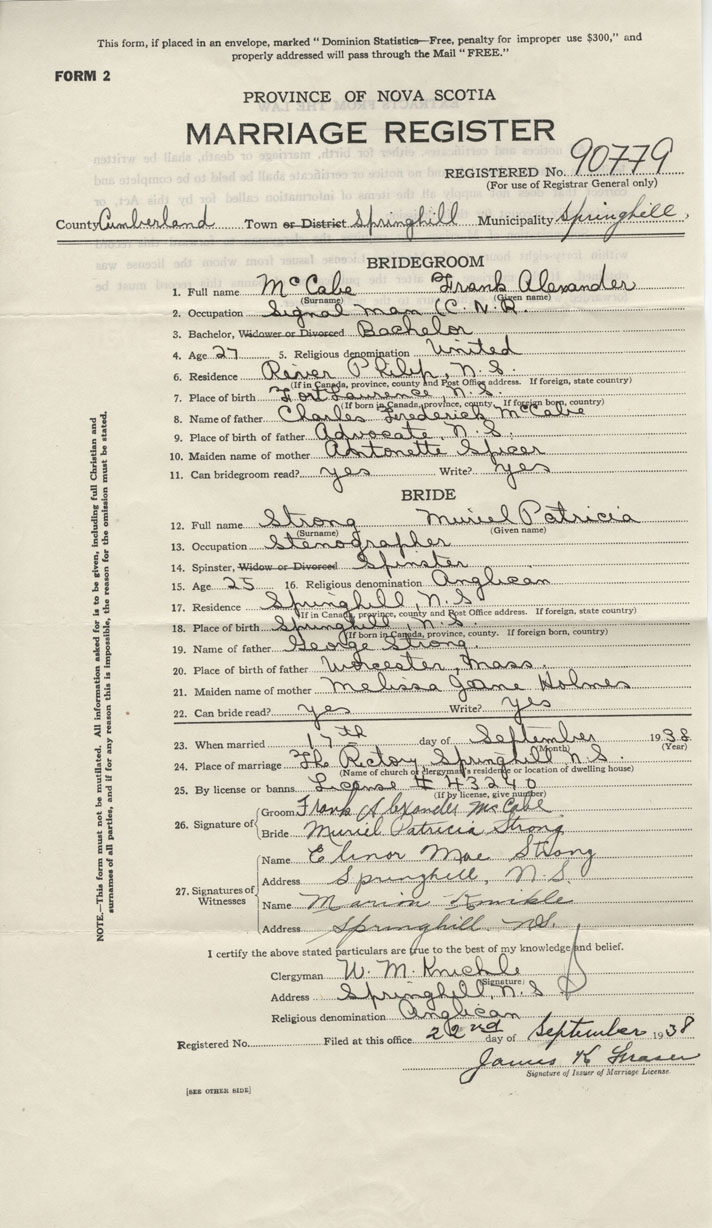 This form, if placed in an envelope, marked "Dominion Statistics—Free, penalty for improper use $300," and
properly addressed will pass through the Mail "FREE."
FORM 2
PROVINCE OF NOVA SCOTIA
MARRIAGE REGISTER
REGISTERED No. 90779
(For use of Registrar General only)
County Cumberland Town or District Springhill Municipality Springhill,
BRIDEGROOM
1. Full name McCabe Frank Alexander
(Surname) (Given name)
2. Occupation Signal man (C.N.R.
3. Bachelor, Widower or Divorced Bachelor
4. Age 27 5. Religious denomination United
6. Residence River Philip, N.S.
(If in Canada, province, county and Post Office address. If foreign, state country)
7. Place of birth Fort Lawrence, N.S.
(If born in Canada, province, county. If foreign born, country)
8. Name of father Charles Frederick McCabe
9. Place of birth of father Advocate, N.S.
10. Maiden name of mother Antonette Spicer
11. Can bridegroom read? yes Write? yes
BRIDE
12. Full name Strong Muriel Patricia
(Surname) (Given name)
13. Occupation Stenographer
14. Spinster, Widow or Divorced Spinster
15. Age 25 16. Religious denomination Anglican
17. Residence Springhill, N.S.
(If in Canada, province, county and Post Office address. If foreign, state country)
18. Place of birth Springhill, N.S.
(If born in Canada, province, county. If foreign born, country)
19. Name of father George Strong.
20. Place of birth of father Worcester, Mass.
21. Maiden name of mother Melissa Jane Holmes
22. Can bride read? yes Write? yes
23. When married 17th day of September 1938
(Month) (Year)
24. Place of marriage The Rectory, Springhill N.S.
(Name of church or clergyman's residence or location of dwelling house)
25. By license or banns License # 43240
(If by license, give number)
26. Signature of Groom Frank Alexander McCabe
Bride Muriel Patricia Strong
27. Signatures of Witnesses
Name Elinor Mae Strong
Address Springhill, N.S.
Name Marion
Address Springhill NS.
I certify the above stated particulars are true to the best of my knowledge and belief.
Clergyman W. M.
(Signature)
Address Springhill, N.S
Religious denomination Anglican
Registered No. Filed at this office 22nd day of September 1938
James H Fraser
Signature of Issuer of Marriage License
[SEE OTHER SIDE]
NOTE.—This form must not be mutilated. All information asked for is to be given, including full Christian and
surnames of all parties, and if for any reason this is impossible, the reason for the omission must be stated.